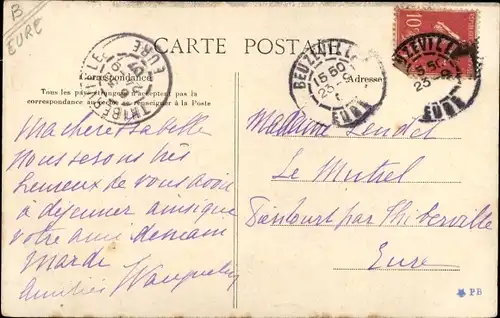 B
EURE
CARTE POSTALE
Correspondance
Adresse
Tous les pays étrangers n'acceptent pas la
correspondance au recto se renseigner à la Poste
BEUZEVILLE
15 50
23 -9
EURE
BEUZEVILLE
15 50
23 -9
EURE
THIBERVILLE
EURE
10
Ma chère Isabelle
Nous serons très
heureux de vous avoir
à dejeuner ainsique
votre ami demain
Mardi
Amitiés
Madame
Le
par Thiberville
Eure
PB